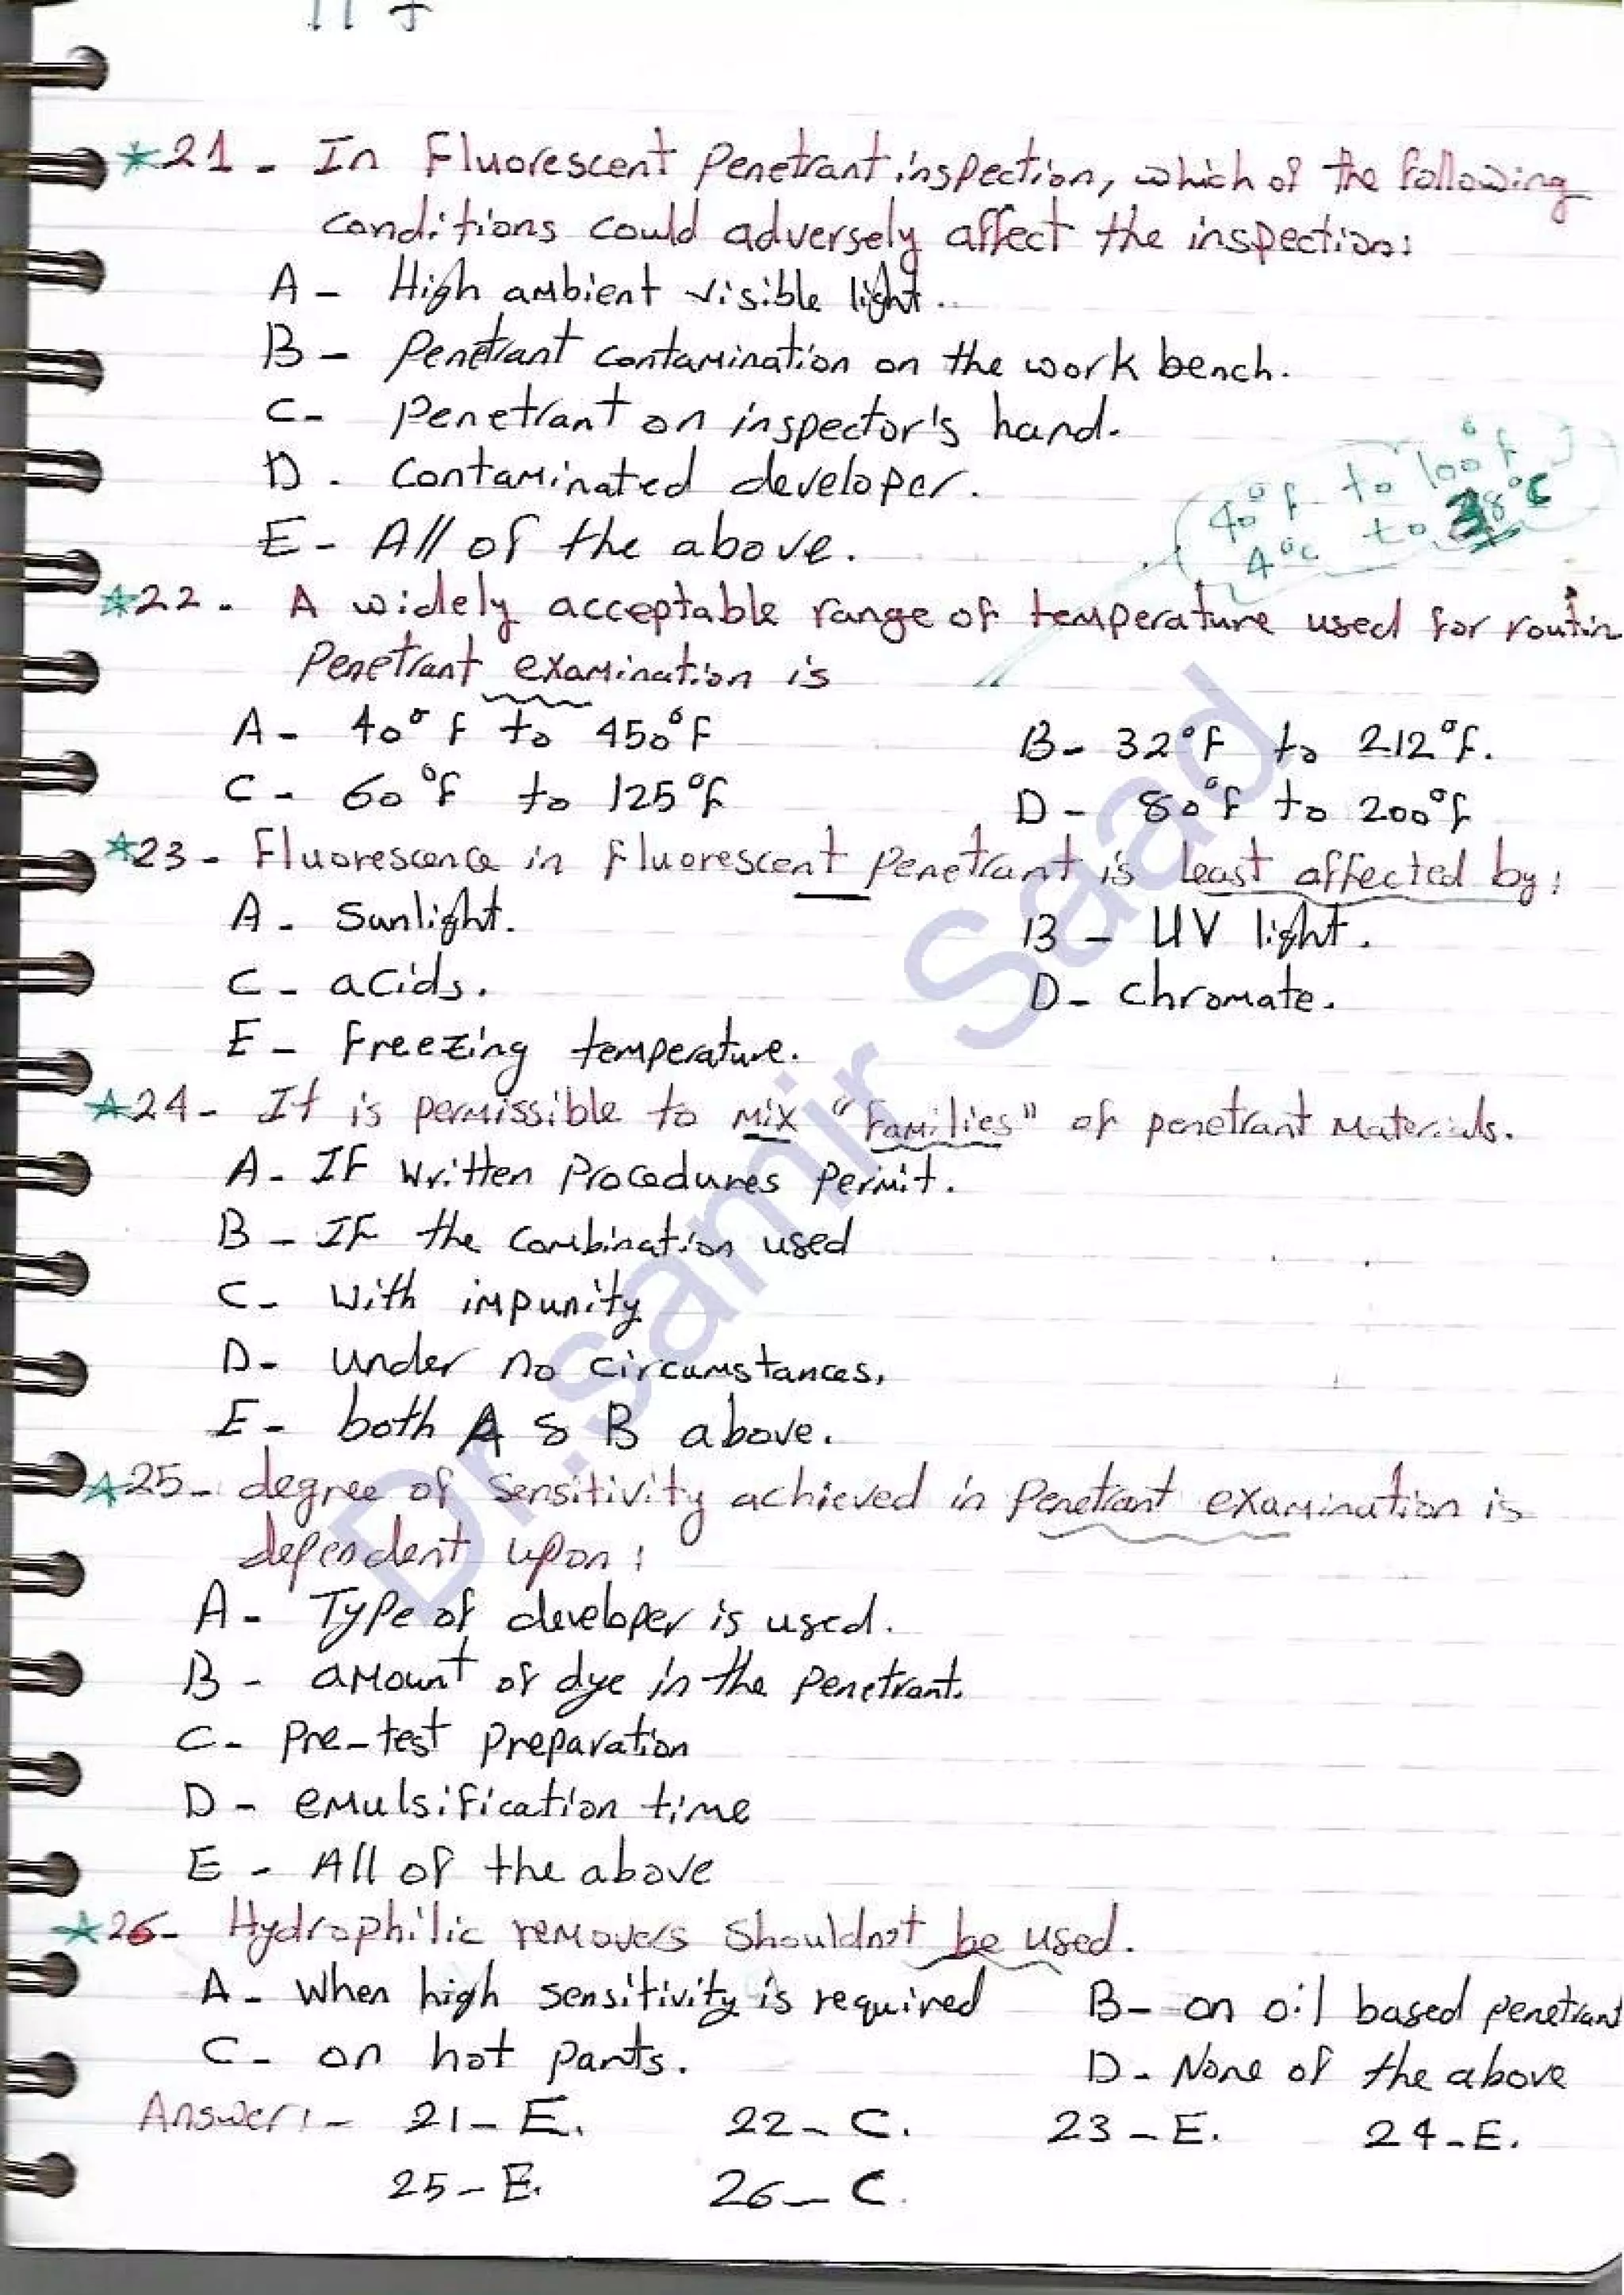 *21- In Fluorescent penetrant inspection, which of the following
conditions could adversely affect the inspection:
A- High ambient visible light.
B- Penetrant contamination on the work bench.
C- penetrant on inspector's hand.
D. Contaminated developer.
E- All of the above.
40°F to 100°F
4°C to 38°C
*22- A widely acceptable range of temperature used for routin
Penetrant examination is
A- 40°F to 450°F B- 32°F to 212°F.
C- 60°F to 125°F D- 80°F to 200°F
*23- Fluorescence in fluorescent penetrant is least affected by:
A- Sunlight. B- UV light.
C- acids. D- chromate.
E- Freezing temperature.
*24- It is permissible to mix "families" of penetrant Materials.
A- IF written Procedures Permit.
B- IF the combination used
C- with impunity
D- under no circumstances.
E- both A & B above.
*25- degree of sensitivity achieved in Penetrant examination is
dependent upon:
A- Type of developer is used.
B- amount of dye in the penetrant.
C- Pre-test preparation
D- emulsification time
E- All of the above
*26- Hydrophilic removers shouldnot be used.
A- when high sensitivity is required B- on oil based penetrant
C- on hot parts. D- None of the above
Answer:- 21-E. 22-C. 23-E. 24-E.
25-E. 26-C.
Dr.samir Saad